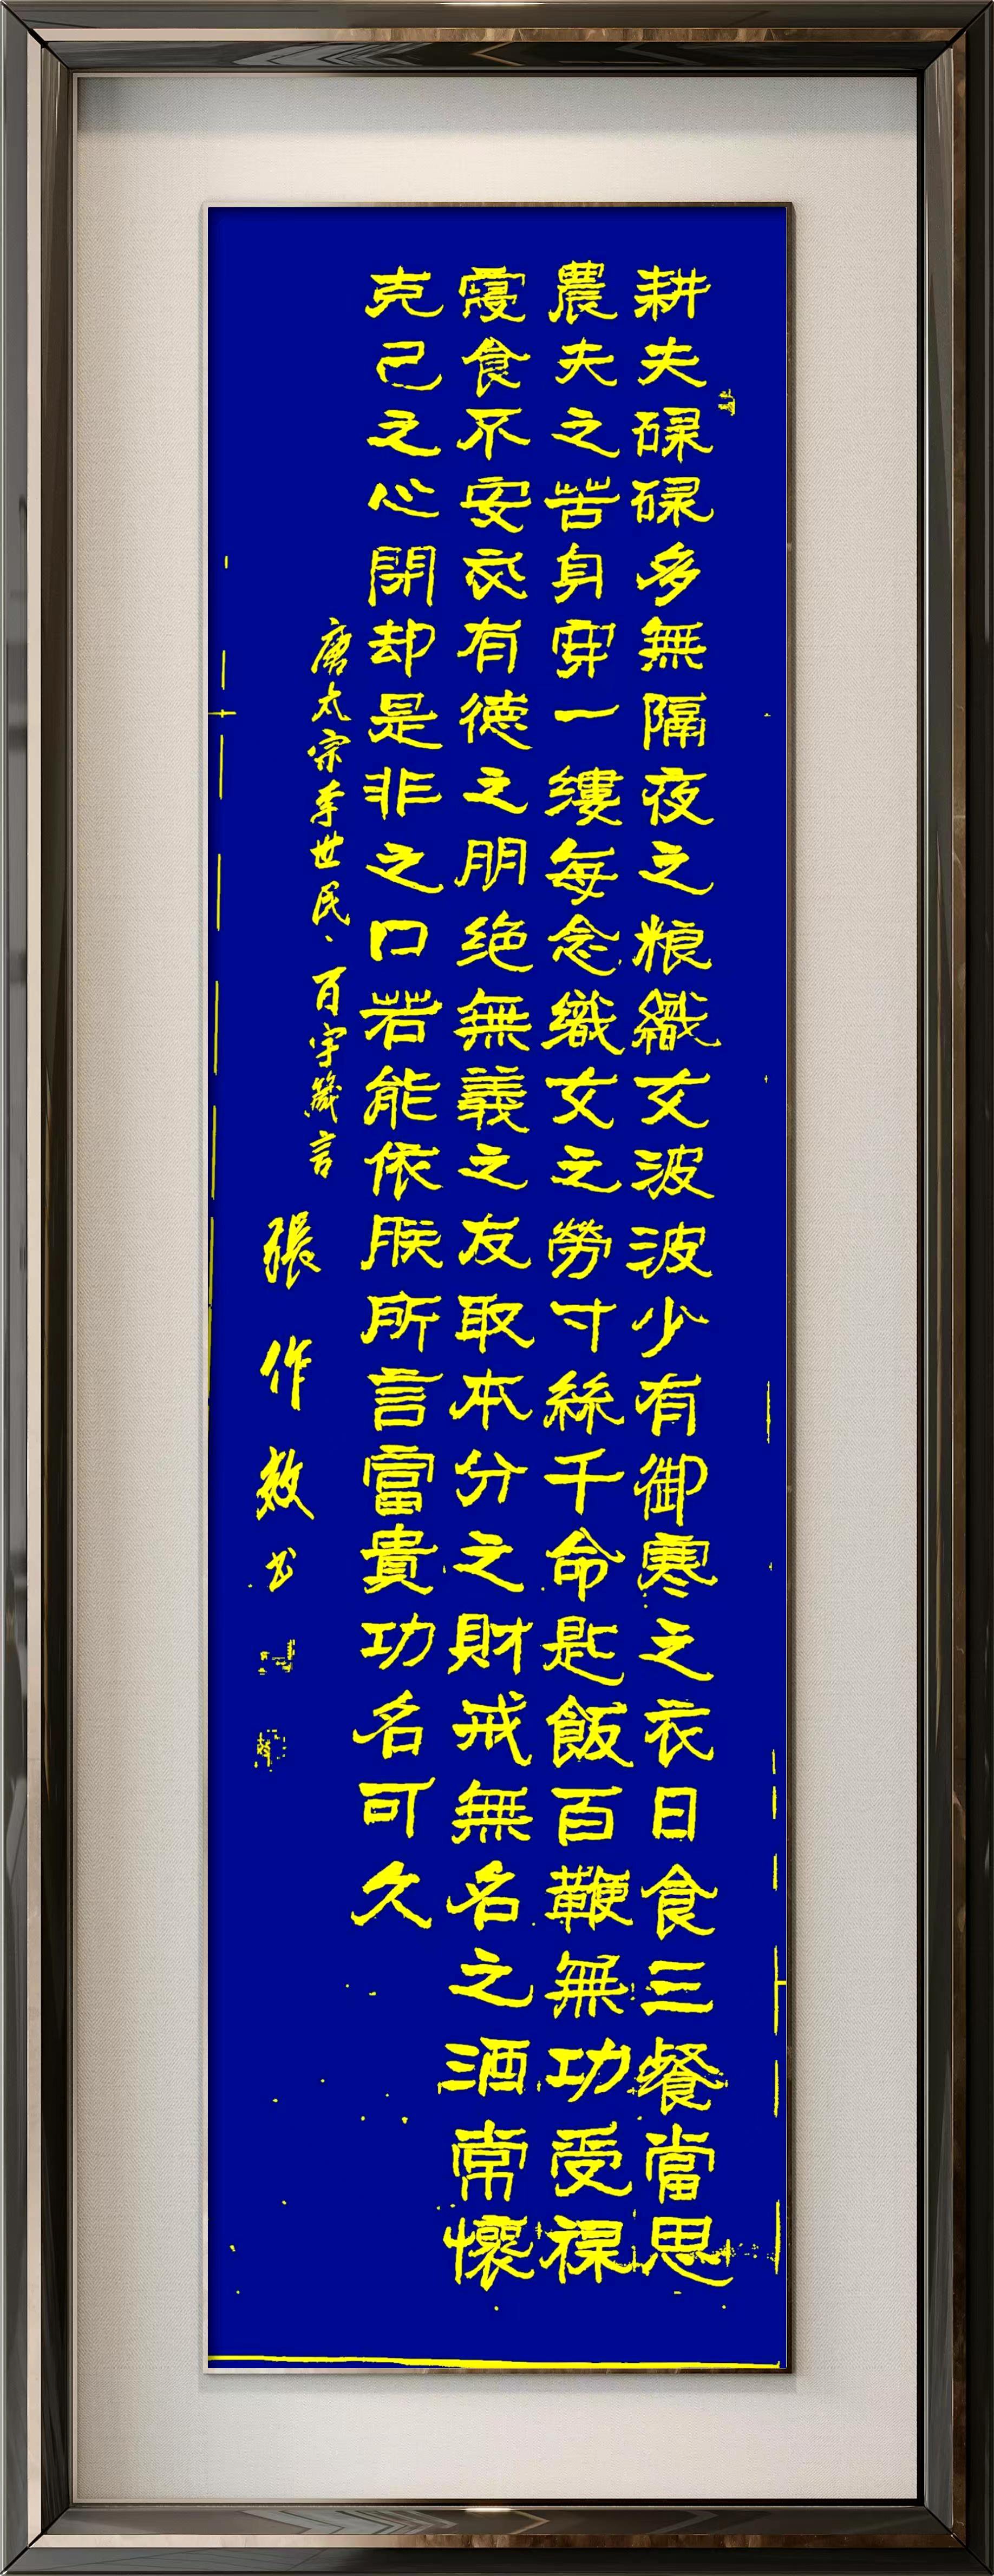 耕夫碌碌多無隔夜之粮織女波波少有御寒之衣日食三餐當思
農夫之苦身穿一縷每念織女之勞寸絲千命匙飯百鞭無功受禄
寢食不安交有德之朋绝無義之友取本分之財戒無名之酒常懷
克己之心閉却是非之口若能依朕所言富貴功名可久
唐太宗李世民、百字箴言
張作书